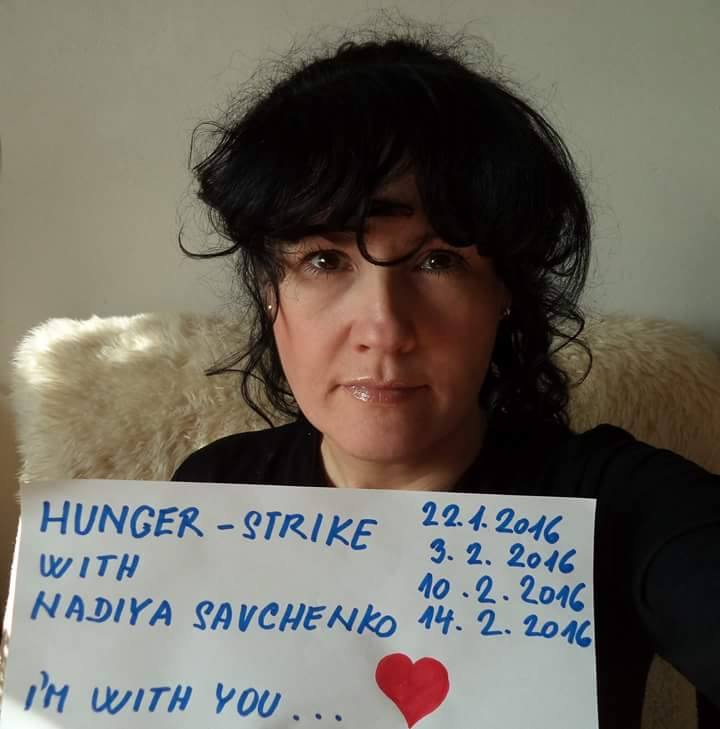 HUNGER-STRIKE 22.1.2016
3.2.2016
WITH 10.2.2016
NADIYA SAVCHENKO 14.2.2016
I'M WITH YOU...